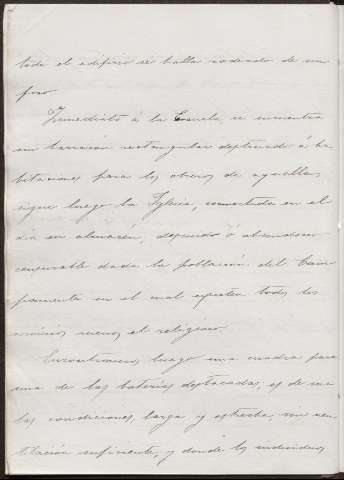 todo el edificio se halla rodeado de un
foso
Inmediato á la Escuela, se encuentra
un barracón rectangular destinado á ha
bitaciones para los obreros de aquella,
sigue luego la Iglesia, convertida en el
dia en almacén, descuido ó abandono
censurable dada la población del Cam
pamento en el cual existen todos los
servicios menos el religioso.
Encontramos luego una cuadra para
una de las baterias destacadas, es de ma
las condiciones, larga y estrecha, sin ven
tilación suficiente, y donde los individuos